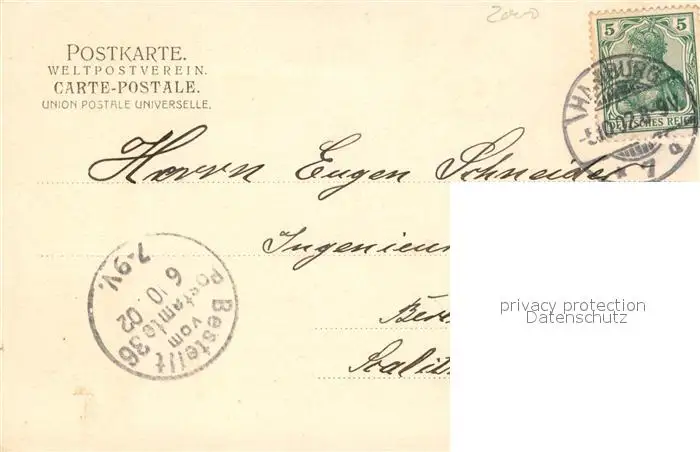 POSTKARTE.
WELTPOSTVEREIN.
CARTE-POSTALE.
UNION POSTALE UNIVERSELLE.
5 5
DEUTSCHES REICH
HAMBURG
7
Herrn Eugen Schneider
Ingenieur
Ber
Scalit
Bestellt
vom
Postamte 36
6 10 02
7-9V.
privacy protection
Datenschutz